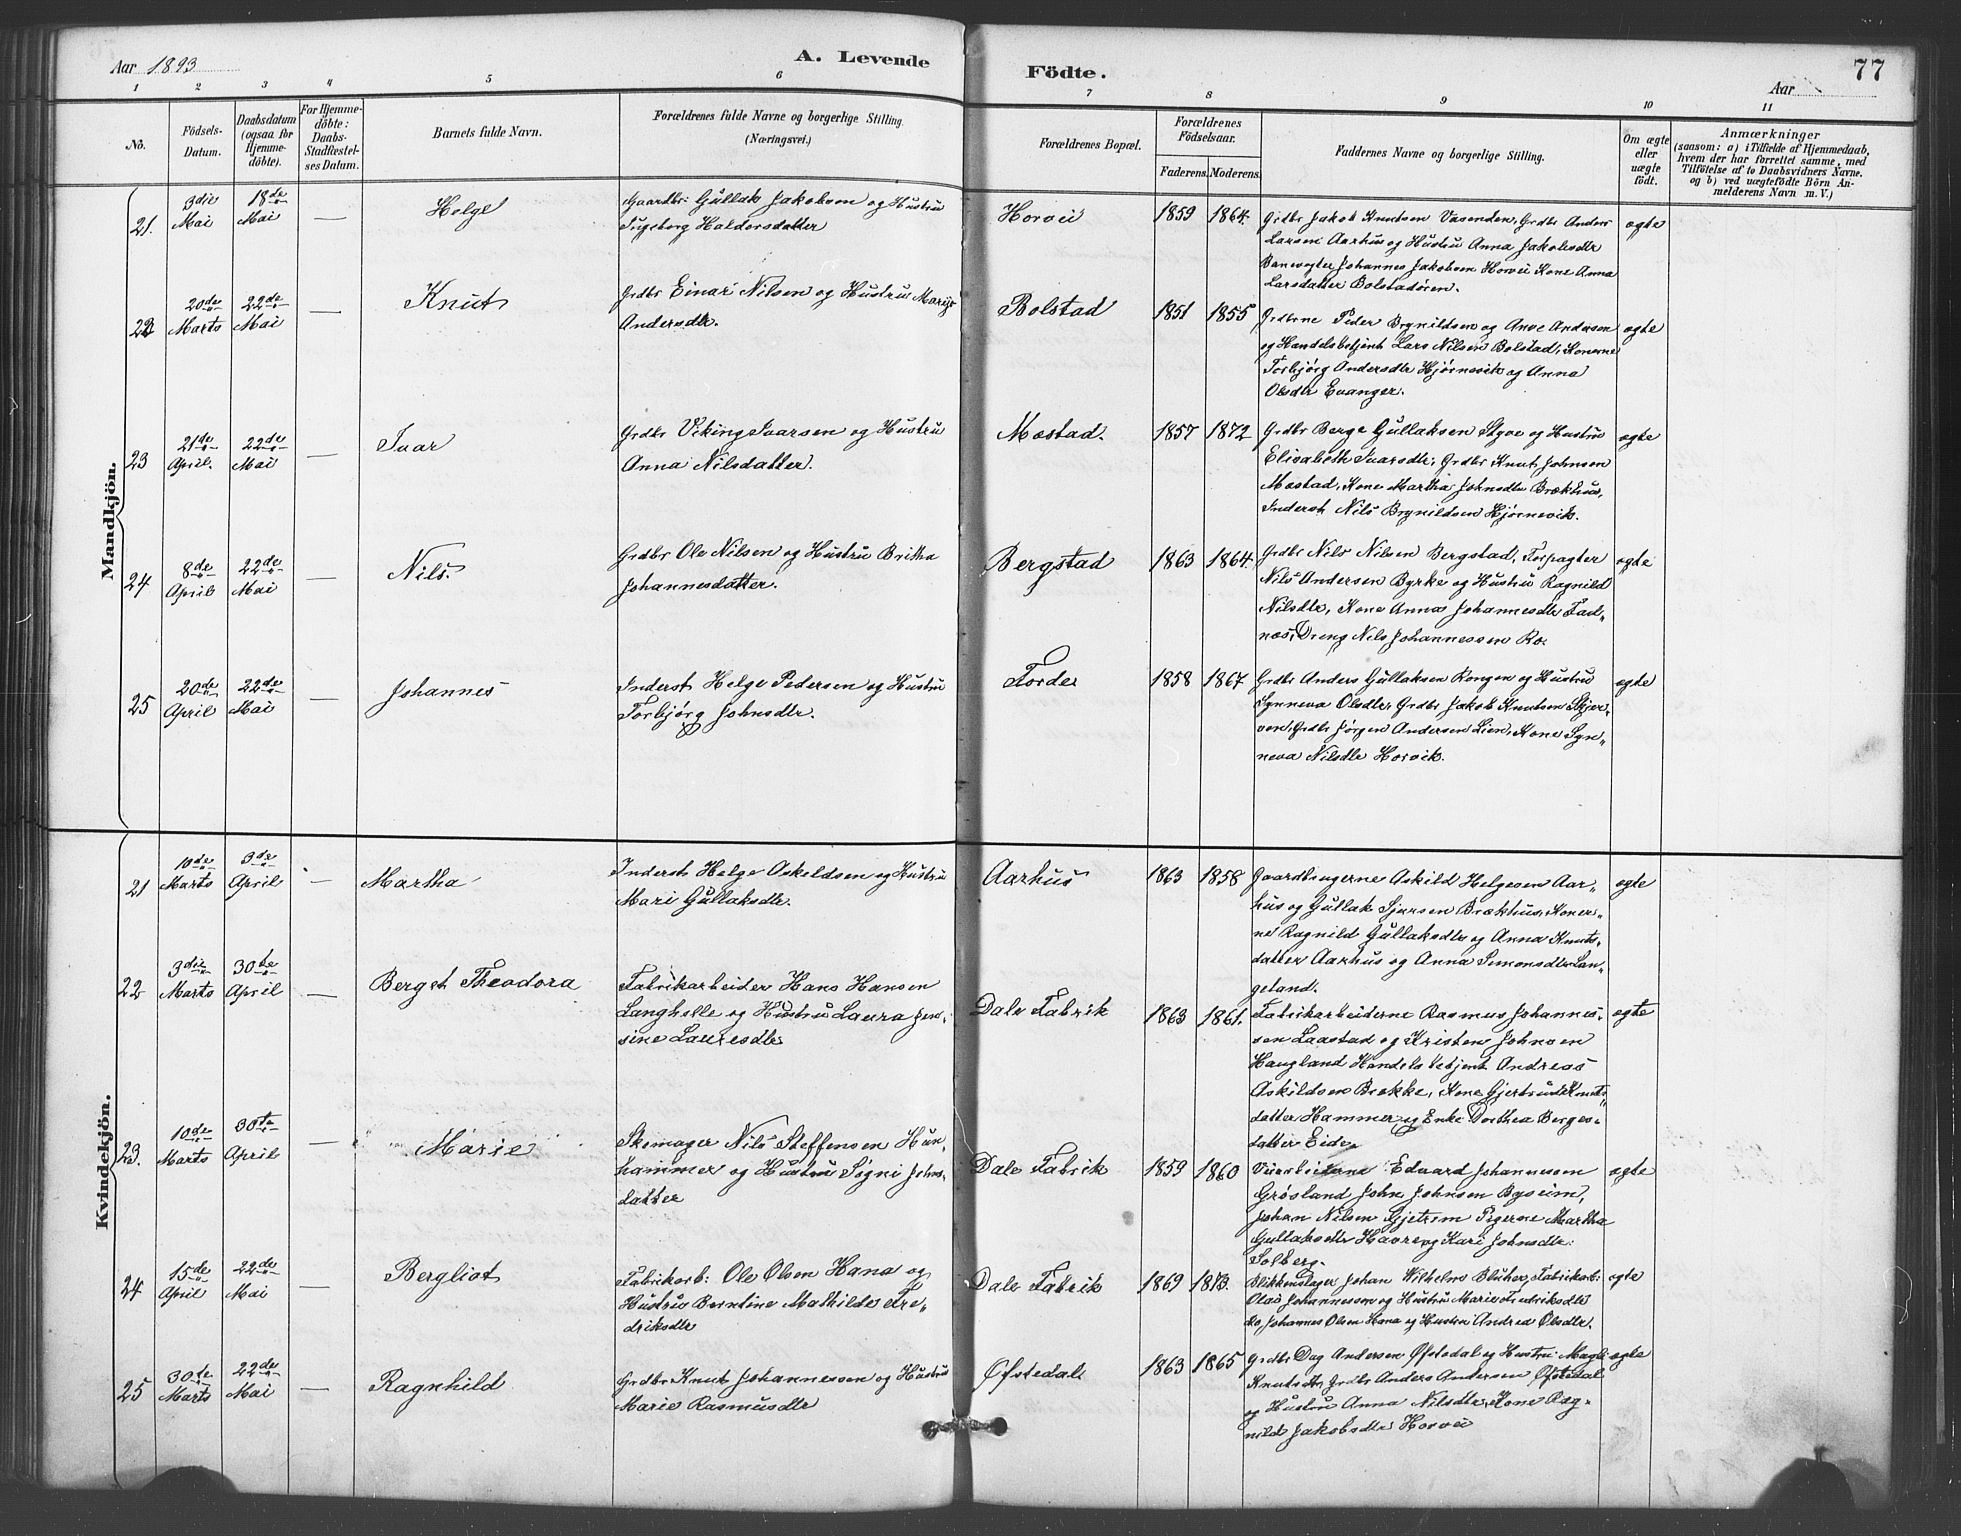 Aar 1893
A. Levende
Födte.
77
Aar
1 2 3 4 5 6 7 8 9 10 11
No.
Födsels-
Datum.
Daabsdatum
(ogsaa for
Hjemme-
döbte).
For Hjemme-
döbte:
Daabs-
Stadfæstel-
ses Datum.
Barnets fulde Navn.
Forældrenes fulde Navne og borgerlige Stilling.
(Næringsvei.)
Forældrenes Bopæl.
Forældrenes
Födselsaar.
Faderens.
Moderens.
Faddernes Navne og borgerlige Stilling.
Om ægte
eller
uægte
födt.
Anmærkninger
(saasom: a) i Tilfælde af Hjemmedaab,
hvem der har forrettet samme, med
Tilföielse af to Daabsvidners Navne.
og b) ved uægtefödte Börn An-
melderens Navn m. V.)
Mandkjön.
21.
3die
Mai
18de
Mai
—
Helge
Gaardbr: Gullak Jakobsen og Hustru
Ingeborg Haldorsdatter
Horvei
1859
1864.
Grdbr Jakob Knutsen Vasenden, Grdbr Anders
Larsen Aarhus og Hustru Anna Jakobsdtr
Banevogter Johannes Jakobsen Horvei Kone Anna
Larsdatter Bolstadören.
ægte
22
20de
Marts
22de
Mai
—
Knut
Grdbr Einar Nilsen og Hustru Marys
Andersdtr.
Bolstad
1851
1855
Grdbrne Peder Brynildsen og Anve Andersen
og Handelsbetjent Lars Nilsen Bolstad, Konerne
Torbjørg Andersdtr Hjørnevik og Anna
Olsdtr Evanger.
ægte
23
21de
April.
22de
Mai
—
Ivar
Grdbr Viking Ivarsen og Hustru
Anna Nilsdatter.
Mostad.
1857
1872
Grdbr Berge Gullaksen Styve og Hustru
Elisabeth Ivarsdtr, Grdbr Knut Johnsen
Mostad, Kone Martha Johnsdtr Brækhus,
Inderst Nils Brynildsen Hjørnevik.
ægte
24
8de
April
22de
Mai
—
Nils.
Grdbr Ole Nilsen og Hustru Britha
Johannesdatter.
Bergstad
1863
1864.
Grdbr Nils Nilsen Bergstad, Forpagter
Nils Andersen Byrke og Hustru Ragnild
Nilsdtr, Kone Anna Johannesdtr Fad„
næs, Dreng Nils Johannessen Ro.
ægte
25
20de
April
22de
Mai
—
Johannes
Inderst Helge Pedersen og Hustru
Torbjørg Johnsdtr.
Forde
1858
1867
Grdbr Anders Gullaksen Rongen og Hustru
Synneva Olsdtr, Grdbr Jakob Knutsen Skjer„
ven, Grdbr Jørgen Andersen Lien, Kone Syn„
neva Nilsdtr Horvik.
ægte
Kvindekjön.
21
10de
Marts
3de
April
—
Martha
Inderst Helge Askeldsen og Hustru
Mari Gullaksdtr.
Aarhus
1863
1858
Gaardbrugerne Askild Helgesen Aar„
hus og Gullak Sjursen Brækhus, Koner„
ne Ragnild Gullaksdtr og Anna Knuts„
datter Aarhus og Anna Simonsdtr Lan„
geland.
ægte
22
3die
Marts
30te
April
—
Berget Theodora
Fabrikarbeider Hans Hansen
Langhelle og Hustru Laura Jen„
sine Lauresdtr
Dale Fabrik
1863
1861.
Fabrikarbeiderne Rasmus Johannes„
sen Laastad og Kristen Johnsen
Haugland Handelsbetjent Andreas
Askildsen Brekke, Kone Gjertrud Knuts„
datter Hammer og Enke Dorthea Berges„
datter Eide
ægte
23.
10de
Marts
30te
April
—
Marie
Skomager Nils Steffensen Hun„
hammer og Hustru Signi Johns„
datter
Dale Fabrik
1859
1860
Edvard Johannesen
Grøsland John Johnsen Byseim,
Johan Nilsen Gjetrem Pigerne Martha
Gullaksdtr Havre og Kari Johnsdtr:
Solberg.
ægte
24
15de
April
22de
Mai
—
Bergliot
Fabrikarb: Ole Olsen Hana og
Hustru Berntine Mathilde Fre„
driksdtr
Dale Fabrik
1869
1873.
Blikkenslager Johan Wilhelm Blüher, Fabrikarb:
Olai Johannessen og Hustru Marie Fredriksdtr
do, Johannes Olsen Hana og Hustru Andrea Olsdtr.
ægte
25
30te
Marts
22de
Mai
—
Ragnhild
Grdbr Knut Johannessen og Hustru
Marie Rasmusdtr
Øfstedal
1863
1865
Grdbr Dag Andersen Øfstedal og Hustru Magli
Knutsdtr, Grdbr Anders Andersen Øfstedal
og Hustru Anna Nilsdtr, Kone Rag„
nild Jakobsdtr Horvei
ægte